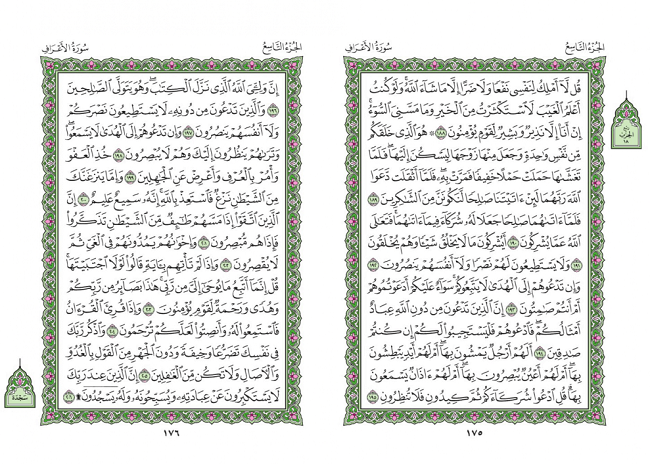 الجزء التاسع
سورة الأعراف
قُل لَّآ أَمْلِكُ لِنَفْسِى نَفْعًا وَلَا ضَرًّا إِلَّا مَا شَآءَ ٱللَّهُ وَلَوْ كُنتُ
أَعْلَمُ ٱلْغَيْبَ لَٱسْتَكْثَرْتُ مِنَ ٱلْخَيْرِ وَمَا مَسَّنِىَ ٱلسُّوٓءُ
إِنْ أَنَا۠ إِلَّا نَذِيرٌ وَبَشِيرٌ لِّقَوْمٍ يُؤْمِنُونَ ١٨٨ ۞ هُوَ ٱلَّذِى خَلَقَكُم
مِّن نَّفْسٍ وَٰحِدَةٍ وَجَعَلَ مِنْهَا زَوْجَهَا لِيَسْكُنَ إِلَيْهَا فَلَمَّا
تَغَشَّىٰهَا حَمَلَتْ حَمْلًا خَفِيفًا فَمَرَّتْ بِهِۦ فَلَمَّآ أَثْقَلَت دَّعَوَا
ٱللَّهَ رَبَّهُمَا لَئِنْ ءَاتَيْتَنَا صَٰلِحًا لَّنَكُونَنَّ مِنَ ٱلشَّٰكِرِينَ ١٨٩
فَلَمَّآ ءَاتَىٰهُمَا صَٰلِحًا جَعَلَا لَهُۥ شُرَكَآءَ فِيمَآ ءَاتَىٰهُمَا فَتَعَٰلَى
ٱللَّهُ عَمَّا يُشْرِكُونَ ١٩٠ أَيُشْرِكُونَ مَا لَا يَخْلُقُ شَيْـًٔا وَهُمْ يُخْلَقُونَ
١٩١ وَلَا يَسْتَطِيعُونَ لَهُمْ نَصْرًا وَلَآ أَنفُسَهُمْ يَنصُرُونَ ١٩٢
وَإِن تَدْعُوهُمْ إِلَى ٱلْهُدَىٰ لَا يَتَّبِعُوكُمْ سَوَآءٌ عَلَيْكُمْ أَدَعَوْتُمُوهُمْ
أَمْ أَنتُمْ صَٰمِتُونَ ١٩٣ إِنَّ ٱلَّذِينَ تَدْعُونَ مِن دُونِ ٱللَّهِ عِبَادٌ
أَمْثَالُكُمْ فَٱدْعُوهُمْ فَلْيَسْتَجِيبُوا۟ لَكُمْ إِن كُنتُمْ
صَٰدِقِينَ ١٩٤ أَلَهُمْ أَرْجُلٌ يَمْشُونَ بِهَآ أَمْ لَهُمْ أَيْدٍ يَبْطِشُونَ
بِهَآ أَمْ لَهُمْ أَعْيُنٌ يُبْصِرُونَ بِهَآ أَمْ لَهُمْ ءَاذَانٌ يَسْمَعُونَ
بِهَا قُلِ ٱدْعُوا۟ شُرَكَآءَكُمْ ثُمَّ كِيدُونِ فَلَا تُنظِرُونِ ١٩٥
١٧٥
الحزب
١٨
الجزء التاسع
سورة الأعراف
إِنَّ وَلِـِّۧىَ ٱللَّهُ ٱلَّذِى نَزَّلَ ٱلْكِتَٰبَ وَهُوَ يَتَوَلَّى ٱلصَّٰلِحِينَ
١٩٦ وَٱلَّذِينَ تَدْعُونَ مِن دُونِهِۦ لَا يَسْتَطِيعُونَ نَصْرَكُمْ
وَلَآ أَنفُسَهُمْ يَنصُرُونَ ١٩٧ وَإِن تَدْعُوهُمْ إِلَى ٱلْهُدَىٰ لَا يَسْمَعُوا۟
وَتَرَىٰهُمْ يَنظُرُونَ إِلَيْكَ وَهُمْ لَا يُبْصِرُونَ ١٩٨ خُذِ ٱلْعَفْوَ
وَأْمُرْ بِٱلْعُرْفِ وَأَعْرِضْ عَنِ ٱلْجَٰهِلِينَ ١٩٩ وَإِمَّا يَنزَغَنَّكَ
مِنَ ٱلشَّيْطَٰنِ نَزْغٌ فَٱسْتَعِذْ بِٱللَّهِ إِنَّهُۥ سَمِيعٌ عَلِيمٌ ٢٠٠ إِنَّ
ٱلَّذِينَ ٱتَّقَوْا۟ إِذَا مَسَّهُمْ طَٰٓئِفٌ مِّنَ ٱلشَّيْطَٰنِ تَذَكَّرُوا۟
فَإِذَا هُم مُّبْصِرُونَ ٢٠١ وَإِخْوَٰنُهُمْ يَمُدُّونَهُمْ فِى ٱلْغَىِّ ثُمَّ
لَا يُقْصِرُونَ ٢٠٢ وَإِذَا لَمْ تَأْتِهِم بِـَٔايَةٍ قَالُوا۟ لَوْلَا ٱجْتَبَيْتَهَا
قُلْ إِنَّمَآ أَتَّبِعُ مَا يُوحَىٰٓ إِلَىَّ مِن رَّبِّى هَٰذَا بَصَآئِرُ مِن رَّبِّكُمْ
وَهُدًى وَرَحْمَةٌ لِّقَوْمٍ يُؤْمِنُونَ ٢٠٣ وَإِذَا قُرِئَ ٱلْقُرْءَانُ
فَٱسْتَمِعُوا۟ لَهُۥ وَأَنصِتُوا۟ لَعَلَّكُمْ تُرْحَمُونَ ٢٠٤ وَٱذْكُر رَّبَّكَ
فِى نَفْسِكَ تَضَرُّعًا وَخِيفَةً وَدُونَ ٱلْجَهْرِ مِنَ ٱلْقَوْلِ بِٱلْغُدُوِّ
وَٱلْءَاصَالِ وَلَا تَكُن مِّنَ ٱلْغَٰفِلِينَ ٢٠٥ إِنَّ ٱلَّذِينَ عِندَ رَبِّكَ
لَا يَسْتَكْبِرُونَ عَنْ عِبَادَتِهِۦ وَيُسَبِّحُونَهُۥ وَلَهُۥ يَسْجُدُونَ ۩ ٢٠٦
١٧٦
سجدة